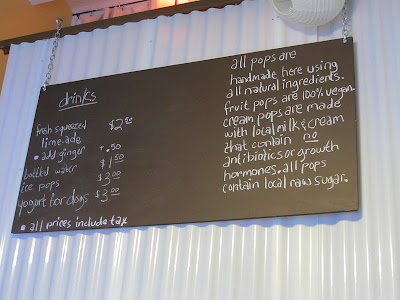 drinks
fresh squeezed
lime-ade $2.50
• add ginger +.50
bottled water $1.50
ice pops $3.00
yogurt for dogs $3.00
• all prices include tax
all pops are
handmade here using
all natural ingredients.
fruit pops are 100% vegan.
cream pops are made
with local milk & cream
that contain no
antibiotics or growth
hormones. all pops
contain local raw sugar.